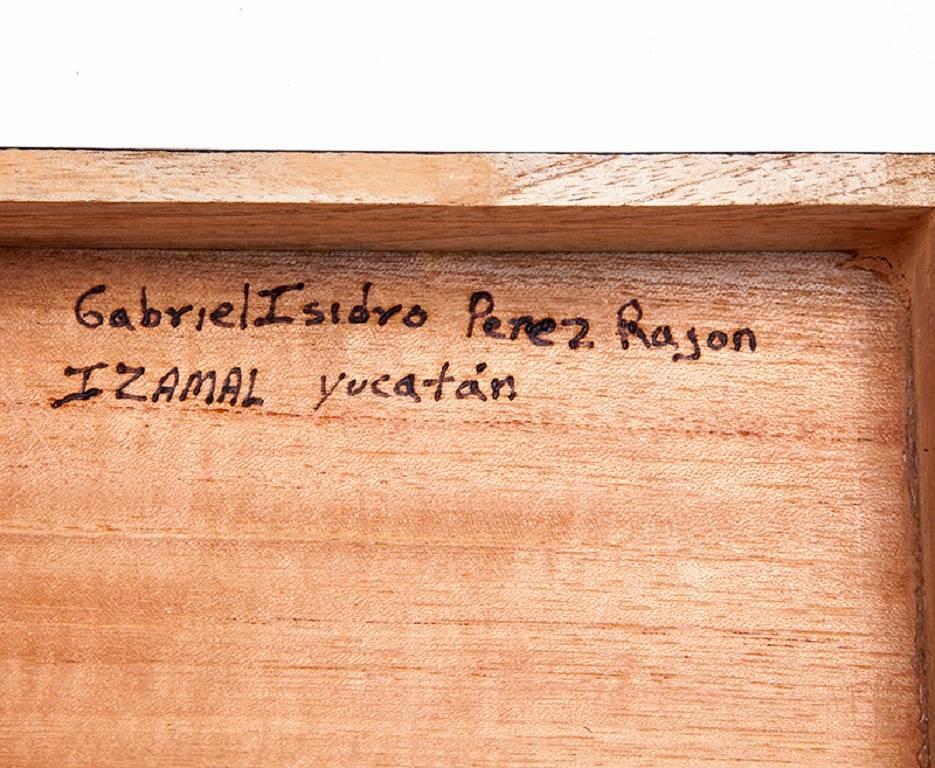 Gabriel Isidro Perez Rajon
IZAMAL yucatán